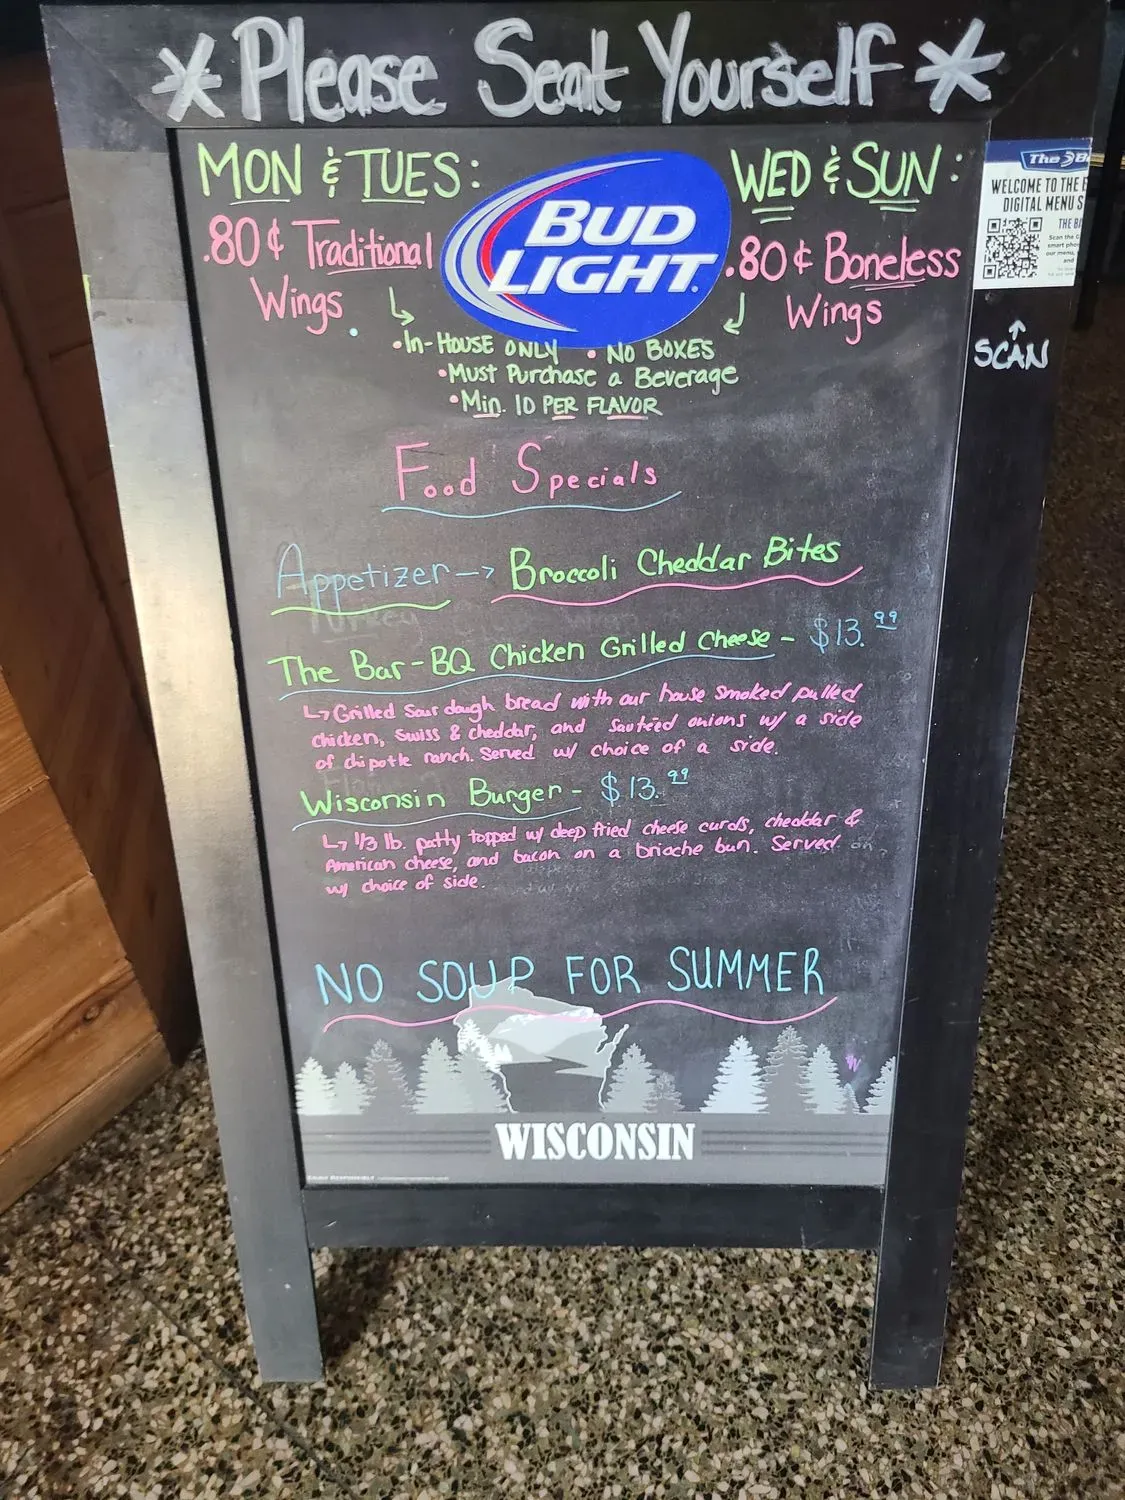 *Please Seat Yourself*
MON & TUES:
.80¢ Traditional
Wings
BUD
LIGHT
WED & SUN:
.80¢ Boneless
Wings
•In-House ONLY • NO BOXES
•Must Purchase a Beverage
•Min. 10 PER FLAVOR
The B
WELCOME TO THE B
DIGITAL MENU S
THE BA
Scan the
smart pho
our menu,
and
SCAN
Food Specials
Appetizer -> Broccoli Cheddar Bites
The Bar-BQ Chicken Grilled Cheese - $13.99
Grilled Sour dough bread with our house smoked pulled
chicken, swiss & cheddar, and sauteed onions w/ a side
of chipotle ranch. Served w/ choice of a side.
Wisconsin Burger - $13.99
1/3 lb. patty topped w/ deep fried cheese curds, cheddar &
American cheese, and bacon on a brioche bun. Served
w/ choice of side.
NO SOUP FOR SUMMER
WISCONSIN